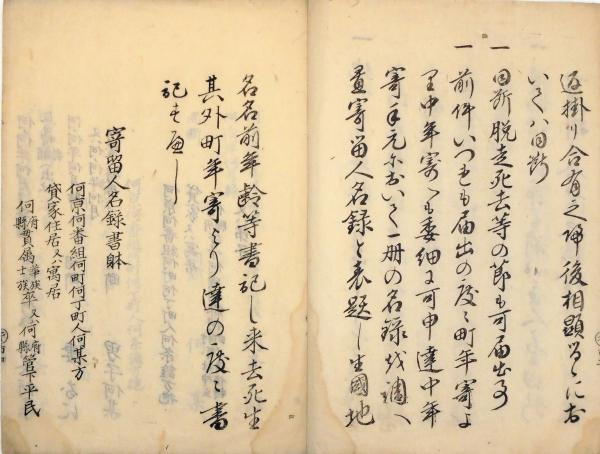 返掛り合有之帰後相顕るゝにお
いてハ同断
一 同断脱走死去等の節も可届出事
一 前件いつれも届出の度々町年寄ゟ
中年寄へも委細に可申達中年
寄手元ニおいて一冊の名録を調へ
置寄留人名録と表題し生國地
名名前年齢等書記し来去死生
其外町年寄ゟり達の度々書
記すへし
寄留人名録書体
何京何番組何町何丁町人何某方
貸家住居又ハ寓居
何府縣貫属華族士族卒又ハ何府縣管下平民